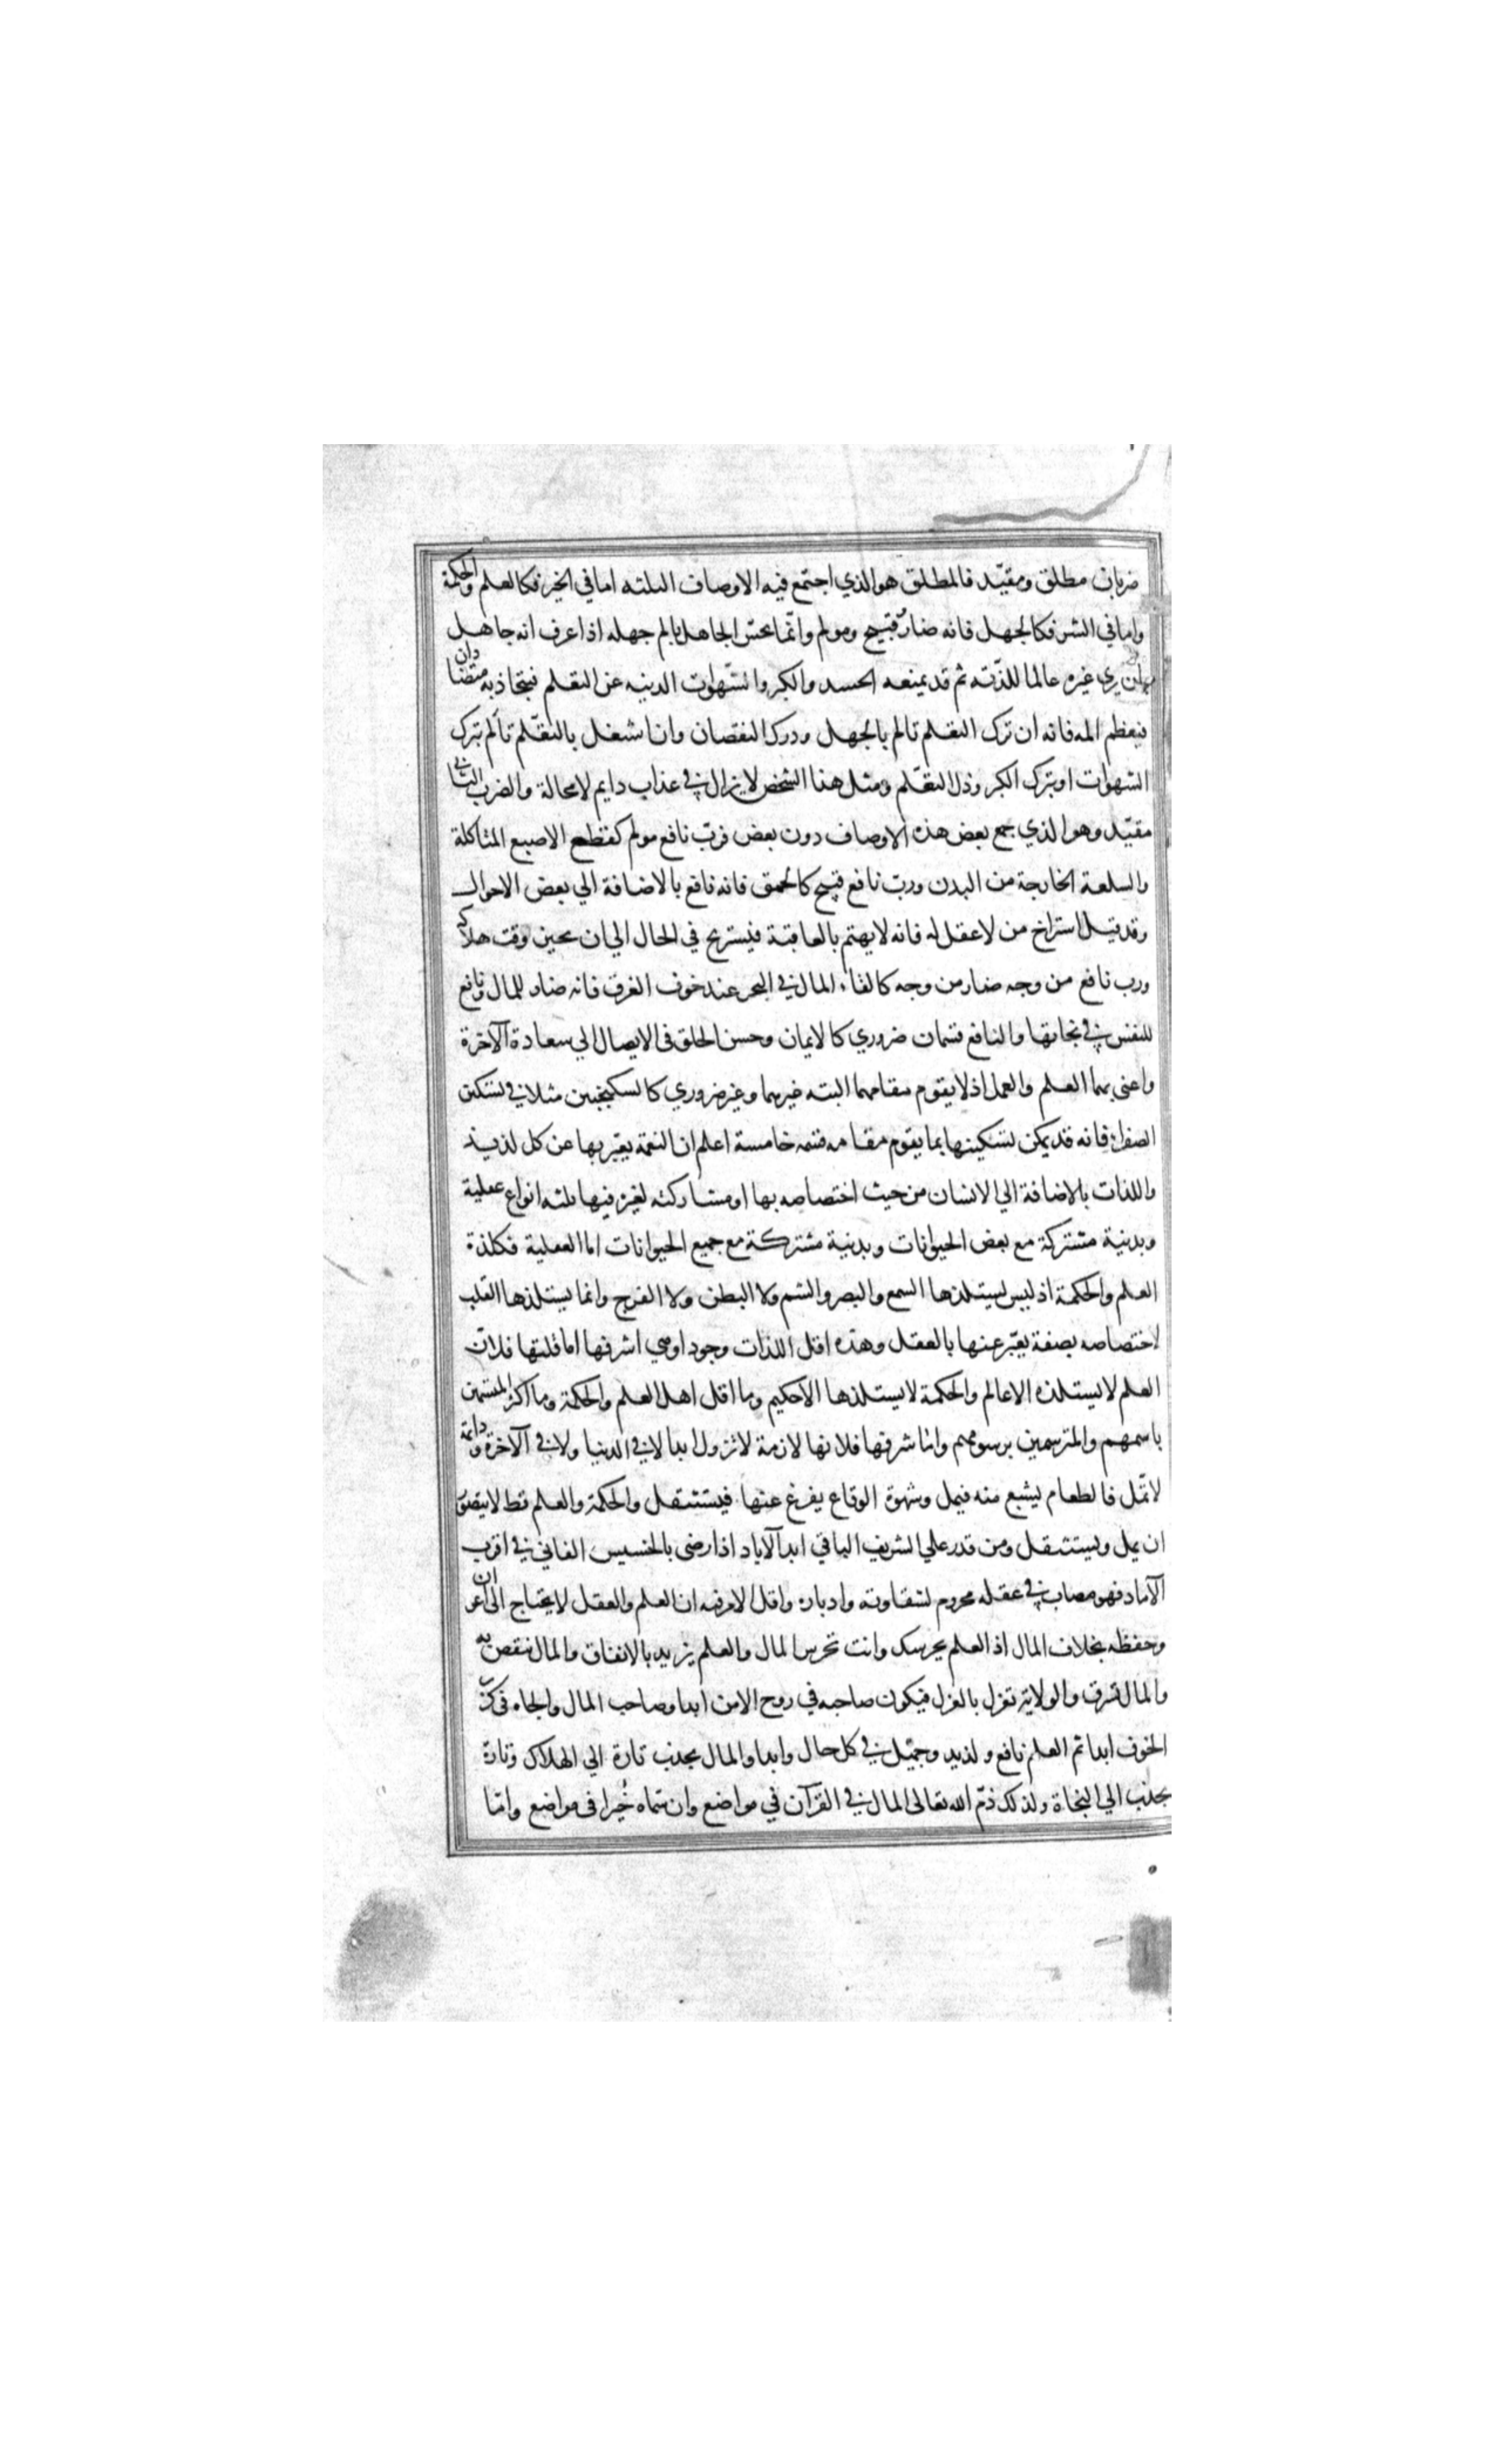 ضربان مطلق ومقيّد فالمطلق هو الذي اجتمع فيه الاوصاف الثلثه اما في الخير فكالعلم والحكمة
واما في الشر فكالجهل فانه ضار قبيح ومولم وانّما يحسّ الجاهل بالم جهله اذا عرف انه جاهل
بان يري غيره عالما للذّته ثم قد يمنعه الحسد والكبر والشهوات الدينه عن التعلم فيتجاذبه متضادان
فيعظم المه فانه ان ترك التعلم تالم بالجهل ودرك النقصان وان اشتغل بالتعّلم تألم بترك
الشهوات او بترك الكبر وذل التعّلم ومثل هذا الشخص لا يزال في عذاب دايم لا محالة والضرب الثاني
مقيّد وهو الذي جمع بعض هذه الاوصاف دون بعض فربّ نافع مولم كقطع الاصبع المتاكلة
والسلعة الخارجة من البدن ورب نافع قبيح كالحمق فانه نافع بالاضافة الي بعض الاحوال
وقد قيل استراح من لا عقل له فانه لا يهتم بالعاقبة فيستريح في الحال الي ان يحين وقت هلاكه
ورب نافع من وجه ضار من وجه كالقاء المال في البحر عند خوف الغرق فانه ضار للمال ونافع
للنفس في نجاتها والنافع قسمان ضروري كالايمان وحسن الخلق في الايصال الي سعادة الآخرة
واعني بهما العلم والعمل اذ لا يقوم مقامهما البته غيرهما وغير ضروري كالسكنجبين مثلا في تسكين
الصفراء فانه قد يمكن تسكينها بما يقوم مقامه قسمه خامسة اعلم ان النعمة يعبّر بها عن كل لذيذ
واللذات بالاضافة الي الانسان من حيث اختصاصه بها او مشاركته لغيره فيها ثلثه انواع عقلية
وبدنية مشتركة مع بعض الحيوانات وبدنية مشتركة مع جميع الحيوانات اما العقلية فكلذة
العلم والحكمة اذ ليس يستلذها السمع والبصر والشم ولا البطن ولا الفرج وانما يستلذها القلب
لاختصاصه بصفة يعبّر عنها بالعقل وهذه اقل اللذات وجودا وهي اشرفها اما قلتها فلانّ
العلم لا يستلذه الا عالم والحكمة لا يستلذها الا حكيم وما اقل اهل العلم والحكمة وما اكثر المتسمين
باسمهم والمترسمين برسومهم واما شرفها فلانها لازمة لا تزول ابدا لا في الدنيا ولا في الآخرة ودائمة
لا تمّل فالطعام يشبع منه فيمل وشهوة الوقاع يفرغ عنها فيستثقل والحكمة والعلم قط لا يتصور
ان يمل ويستثقل ومن قدر علي الشريف الباقي ابد الآباد اذا رضي بالخسيس الفاني في اقرب
الآماد فهو مصاب في عقله محروم لشقاوته وادباره واقل الامر فيه ان العلم والعقل لا يحتاج الى اعوان
وحفظه بخلاف المال اذ العلم يحرسك وانت تحرس المال والعلم يزيد بالانفاق والمال ينقص به
والمال يسرق والولاية تعزل بالعزل فيكون صاحبه في روح الامن ابدا وصاحب المال والجاه في كرب
الخوف ابدا ثم العلم نافع ولذيذ وجميّل في كل حال وابدا والمال يجذب تارة الي الهلاك وتارة
يجذب الي النجاة ولذلك ذمّ الله تعالى المال في القرآن في مواضع وان سّماه خيرا في مواضع وامّا